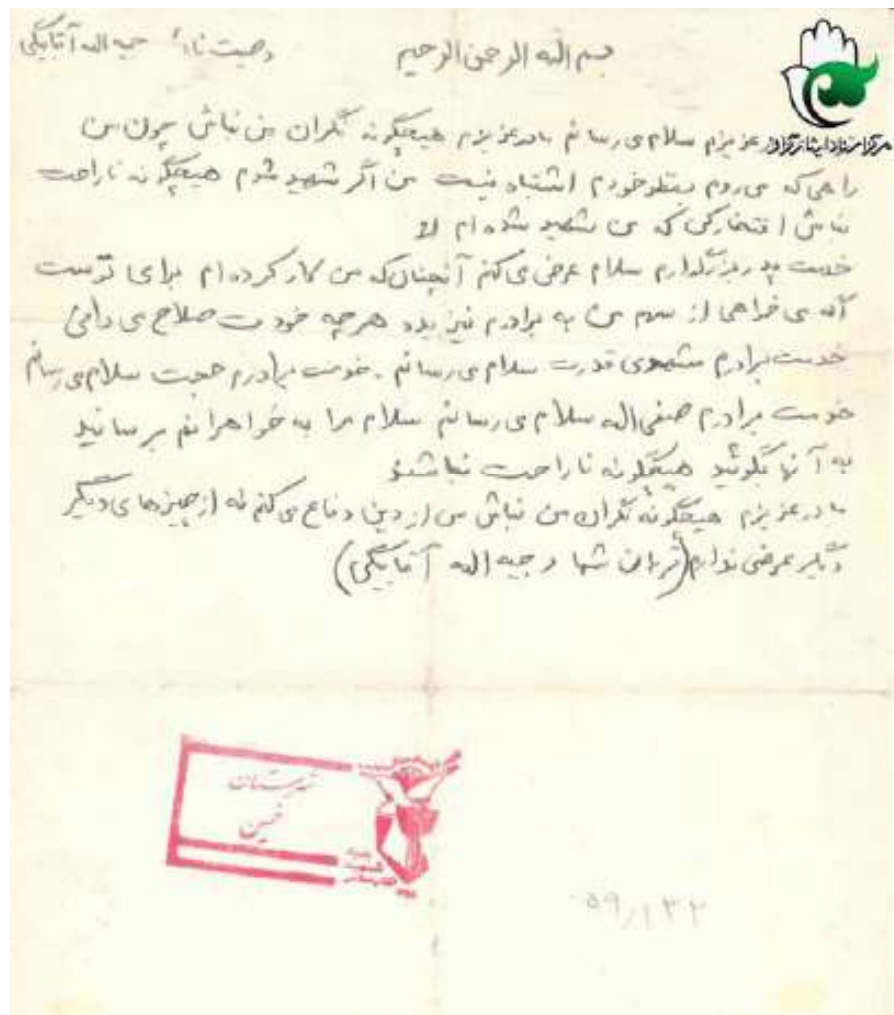 بسم الله الرحمن الرحیم
وصیت نامه وجیه اله آقابیگی
مرکز اسناد ایثارگران
عزیزم سلام می رسانم مادر عزیزم هیچگونه نگران من نباش چون من
راهی که می روم بنظر خودم اشتباه نیست من اگر شهید شدم هیچگونه ناراحت
نباش افتخار کن که من شهید شده ام
خدمت پدر بزرگوارم سلام عرض می کنم آنچنان که من کار کرده ام برای توست
اگه می خواهی از سهم من به برادرم نیز بده هر چه خودت صلاح می دانی
خدمت برادرم مشهدی قدرت سلام می رسانم . خدمت برادرم حجت سلام می رسانم
خدمت برادرم صفی اله سلام می رسانم سلام مرا به خواهرانم برسانید
به آنها بگوئید هیچگونه ناراحت نباشند
مادر عزیزم هیچگونه نگران من نباش من از دین دفاع می کنم نه از چیزهای دیگر
دیگر عرضی ندارم (قربان شما وجیه اله آقابیگی)
شهرستان
خمین
۵۹/۱۳۲